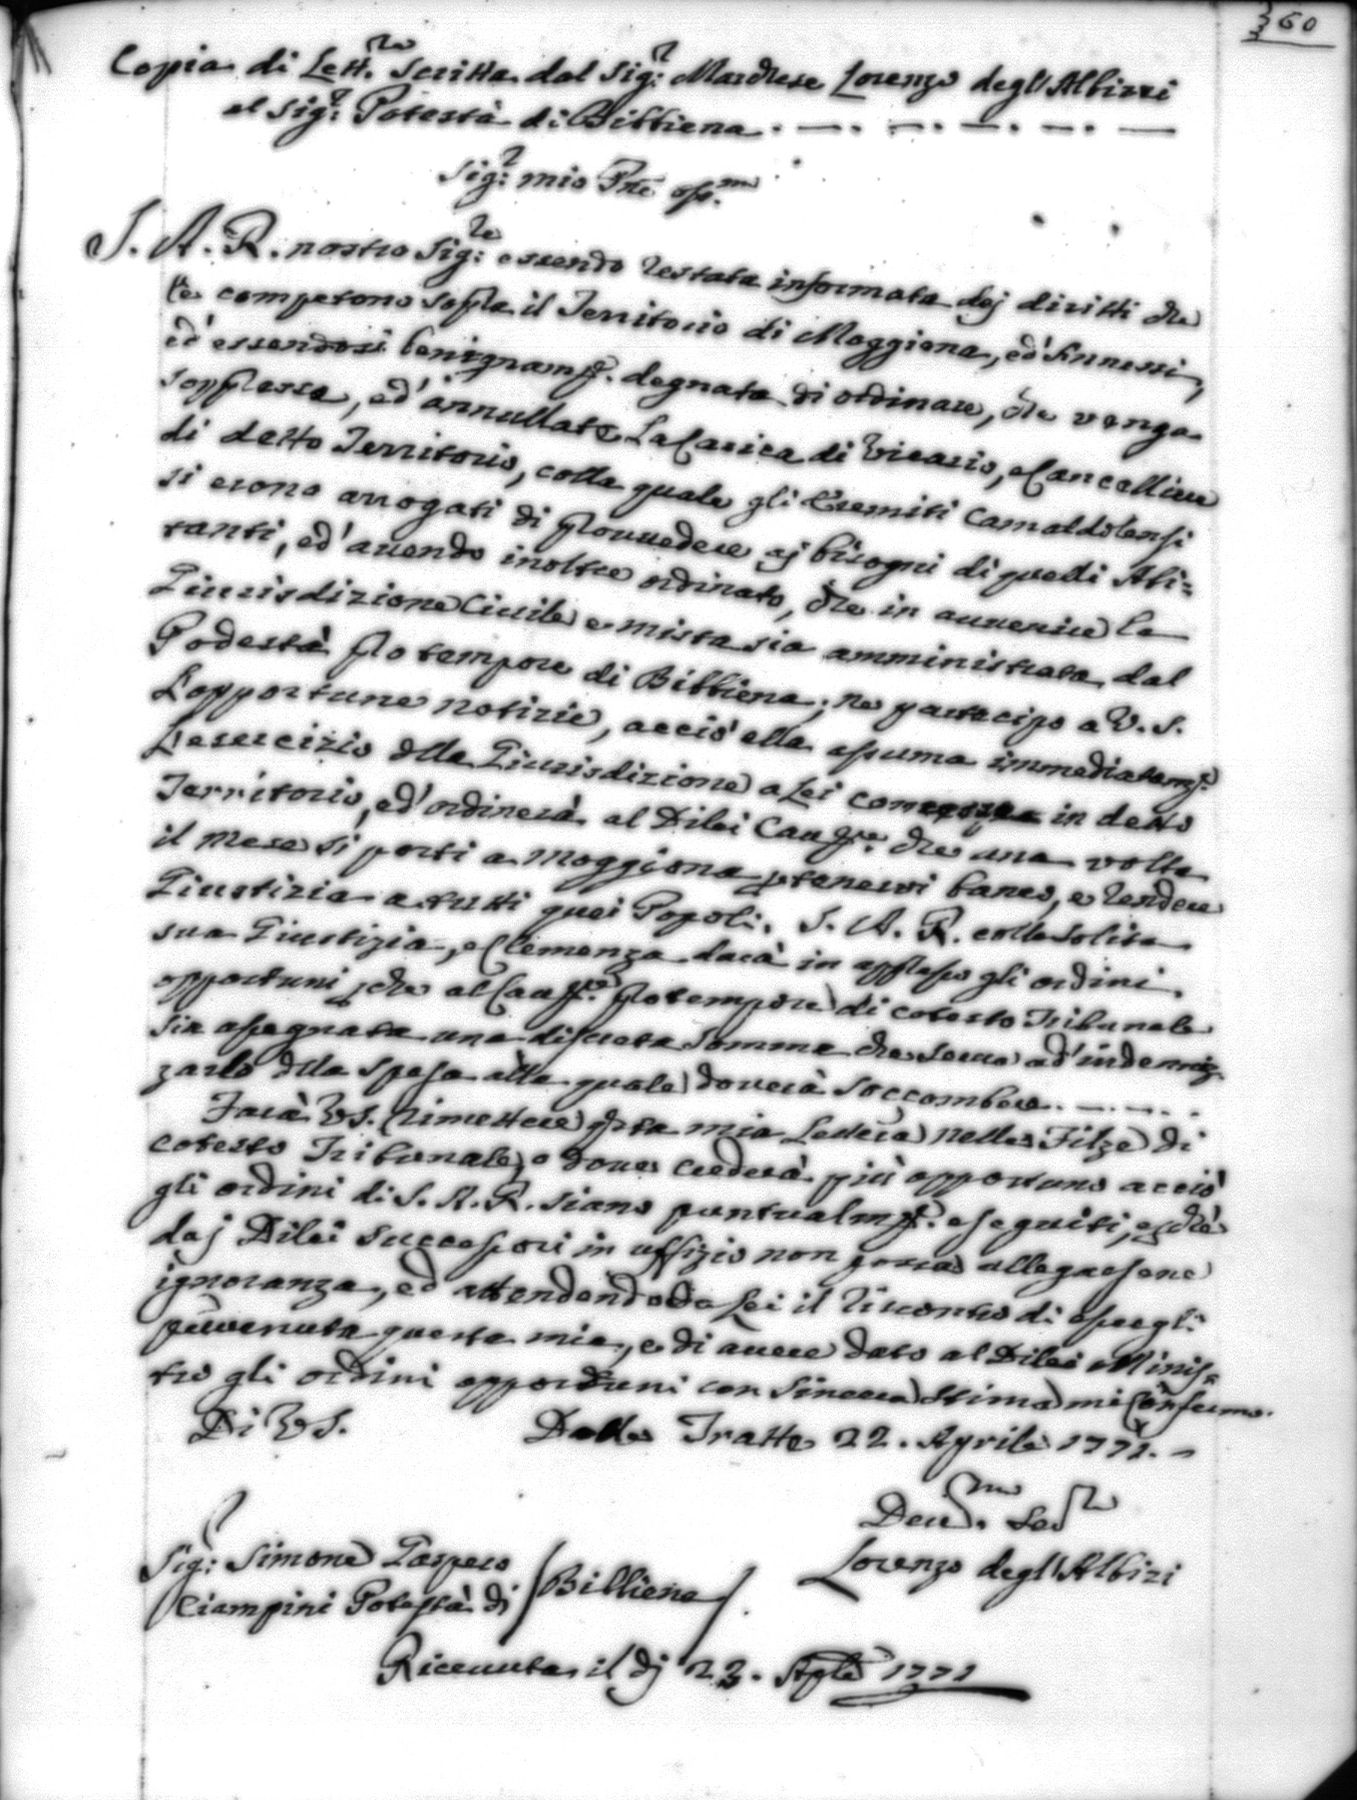 360
Copia di Lett.ra Scritta dal Sig.r Marchese Lorenzo degl'Albizzi
al Sig.r Potestà di Bibbiena . — . — . — . — . —
Sig.r mio Pne oss.mo
S. A. R. nostro Sig.re essendo restata informata dej diritti che
le competono sopra il Territorio di Moggiona, ed' Annessi,
ed' essendosi benignamte. degnata di ordinare, che venga
soppressa, ed' annullata La Carica di Vicario, e Cancelliere
di detto Territorio, colla quale gli Eremiti Camaldolensi
si erono arrogati di provvedere aj bisogni di quelli Abi=
tanti, ed' avendo inoltre ordinato, che in avvenire la
Giurisdizione Civile e mista sia amministrata dal
Podestà pro tempore di Bibbiena; ne partecipo a V. S.
L'opportune notizie, acciò ella assuma immediatamte.
L'esercizio della Giurisdizione a Lei in detto
Territorio, ed' ordinerà al Dilei Cavre. che una volta
il mese si porti a Moggiona p tenervi banco, e rendere
Giustizia a tutti quei Popoli. S. A. R. colla solita
sua Giustizia, e Clemenza darà in appresso gli ordini
opportuni pche al Cavre. pro tempore di cotesto Tribunale
sia assegnata una discreta somma che serva ad' indenniz
zarlo della spesa alla quale doverà soccombere . — . — . .
Farà VS. rimettere qta mia Lettera nelle Filze di
cotesto Tribunale, o dove crederà più opportuno acciò
gli ordini di S. A. R. siano puntualmte. eseguiti, e pchè
daj Dilei Successori in uffizio non possa allegarsene
ignoranza, ed attendendo da Lei il riscontro di essergli
pervenuta questa mia, e di avere dato al Dilei Minis=
tro gli ordini opportuni con Sincera stima mi Confermo.
Di VS. Dalle Tratte 22. Aprile 1771. -
Dev.mo Ser.re
Lorenzo degl'Albizi
Sig.r Simone Gaspero
Ciampini Potestà di / Bibbiena /.
Ricevuta il dj 23. Aple 1771